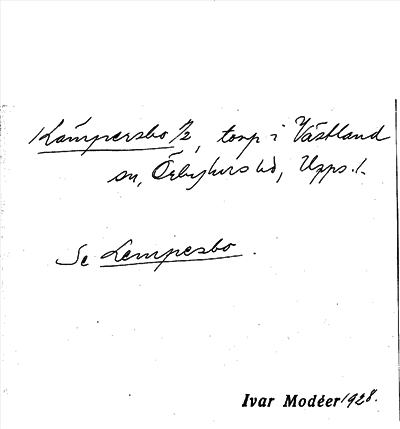 Kämpersbo 1/2, torp i Västland
sn, Örbyhus hd, Upps. l.
Se Lempesbo.
Ivar Modéer 1928.